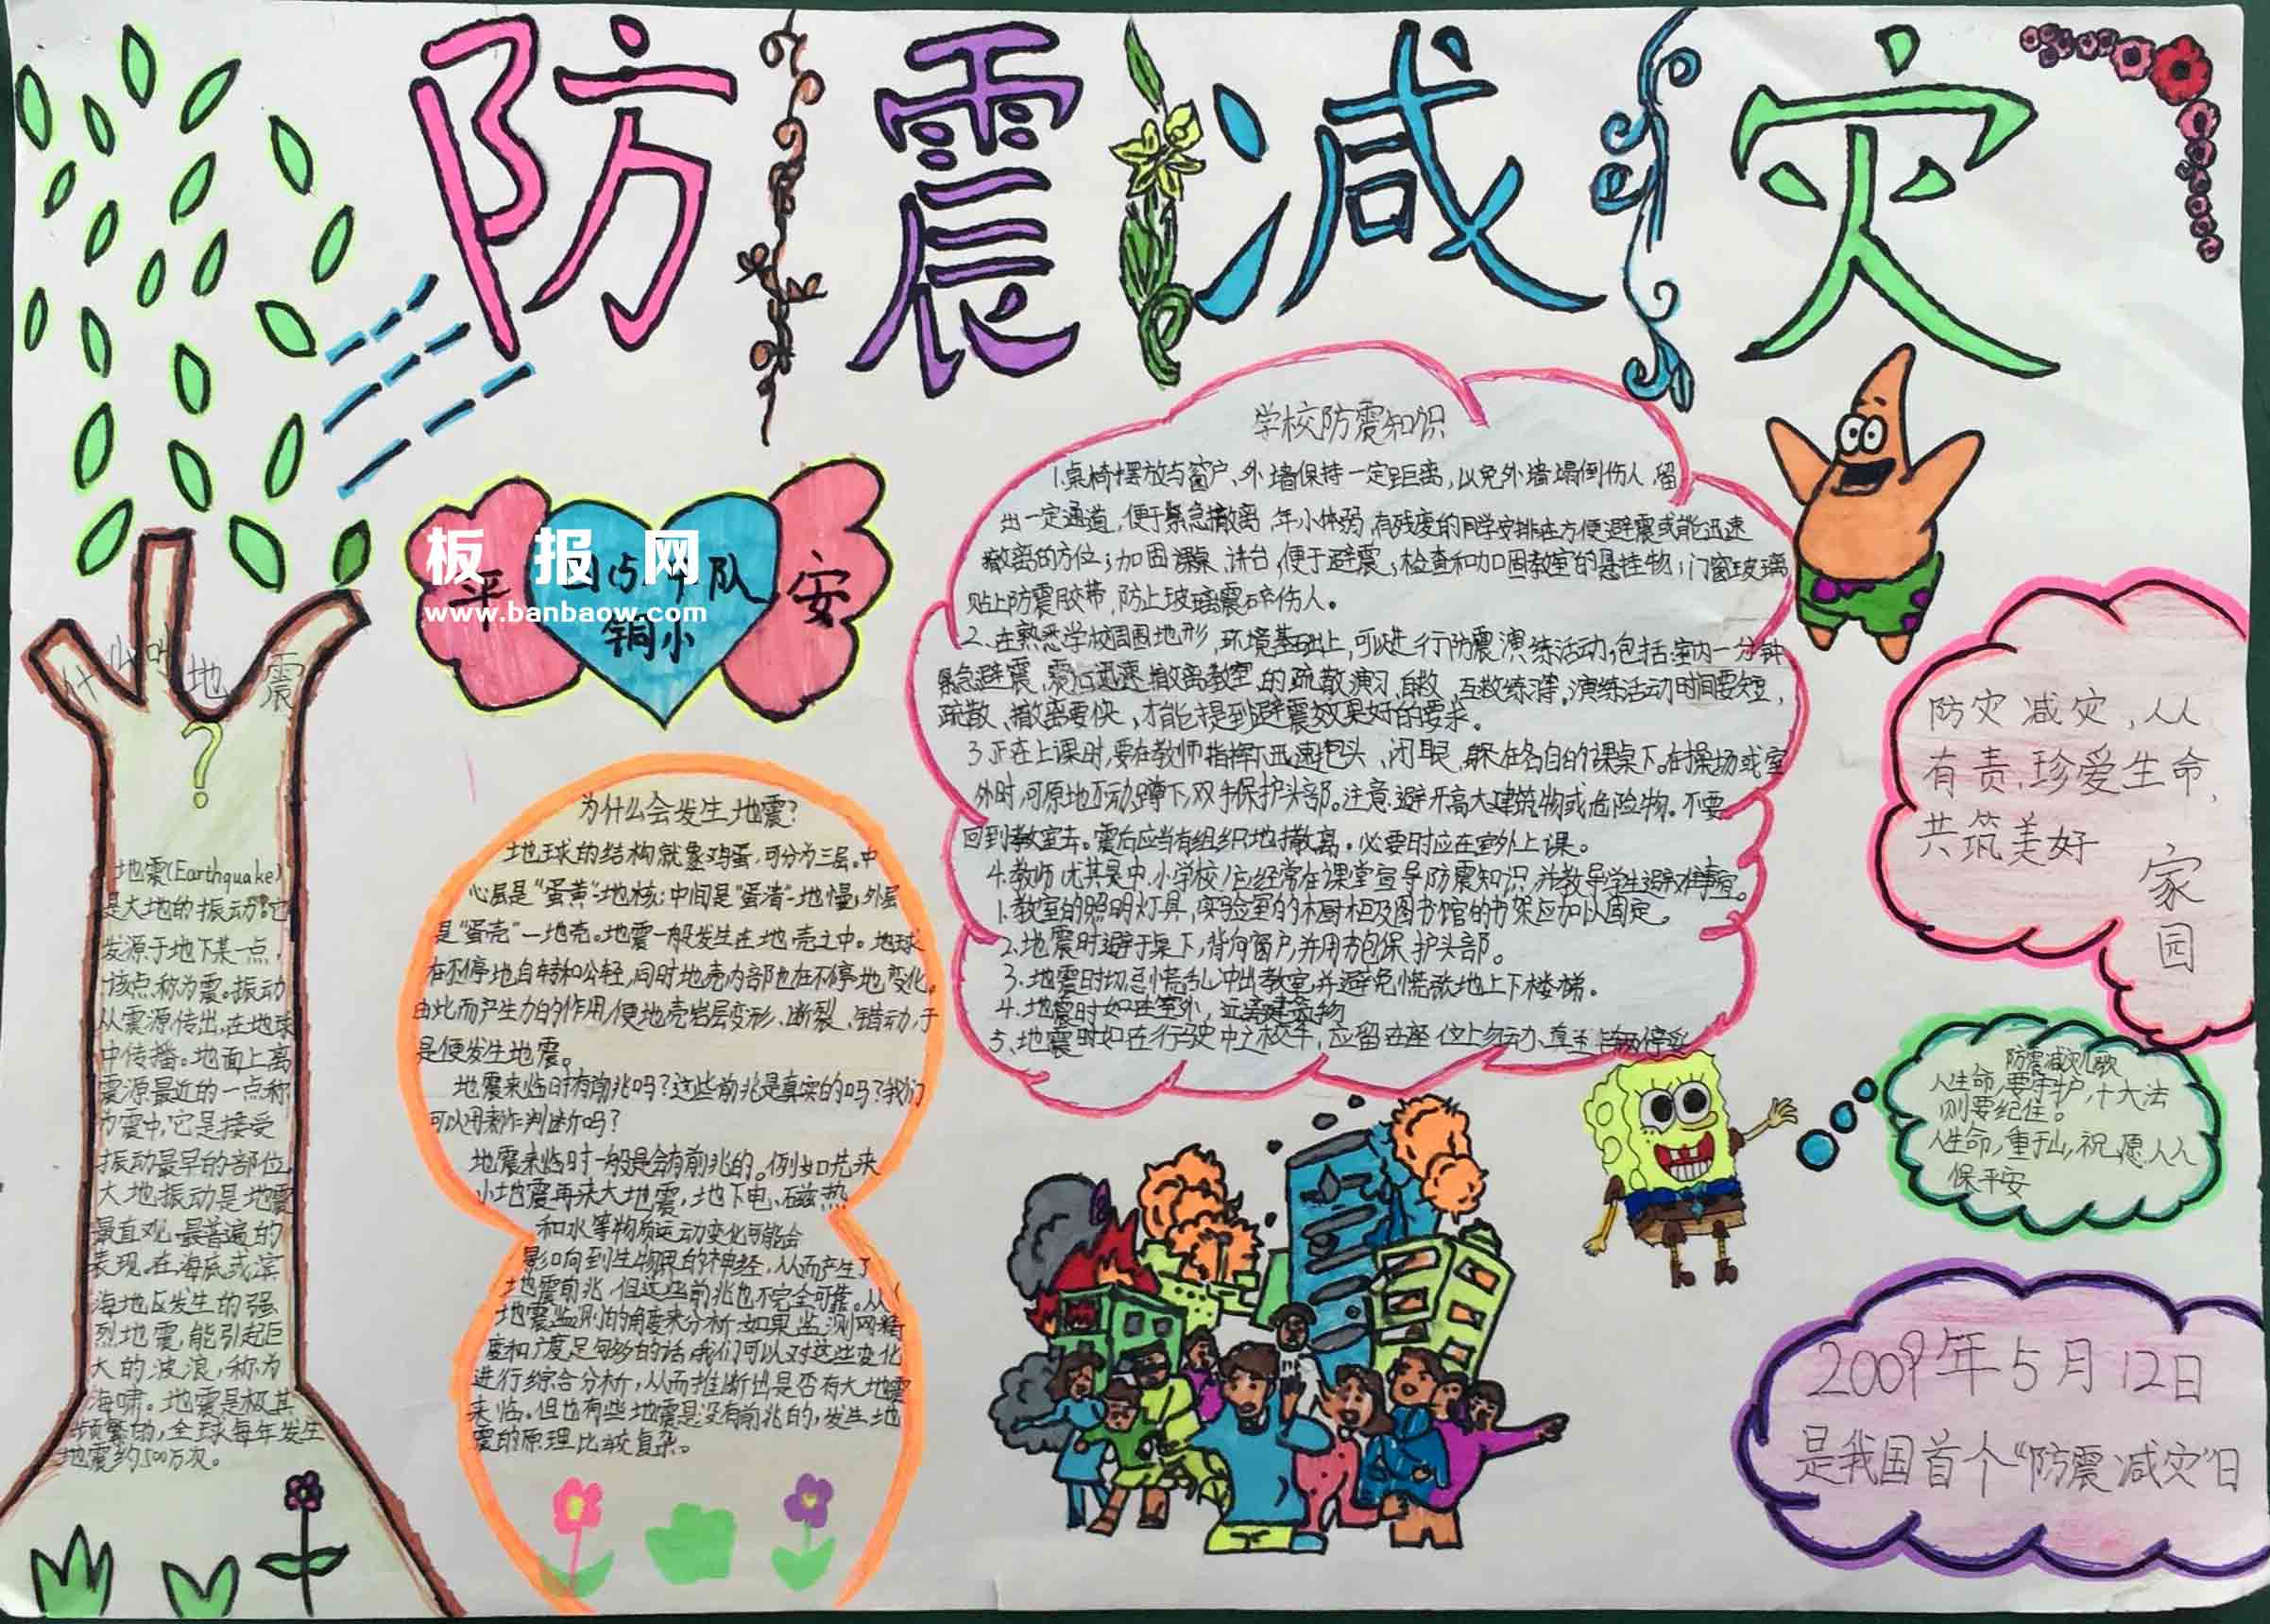 防震减灾
板报网
www.banbaow.com
平
中队
安
铜小
什么叫地震
?
地震(Earthquake)
是大地的振动。它
发源于地下某一点,
该点称为震。振动
从震源传出,在地球
中传播。地面上离
震源最近的一点称
为震中,它是接受
振动最早的部位。
大地振动是地震
最直观、最普遍的
表现。在海底或滨
海地区发生的强
烈地震,能引起巨
大的波浪,称为
海啸。地震是极其
频繁的,全球每年发生
地震约500万次。
为什么会发生地震?
地球的结构就象鸡蛋,可分为三层。中
心层是“蛋黄”-地核;中间是“蛋清”-地慢;外层
是“蛋壳”一地壳。地震一般发生在地壳之中。地球
在不停地自转和公轻,同时地壳内部也在不停地变化。
由此而产生力的作用,便地壳岩层变形、断裂、错动,于
是便发生地震。
地震来临时有前兆吗?这些前兆是真实的吗?我们
可以用来作判断吗?
地震来临时一般是会有前兆的。例如先来
小地震再来大地震,地下电、磁热
和水等物质运动变化可能会
影响到生物界的神经,从而产生了
地震前兆,但这些前兆也不完全可靠。从
地震监测的角度来分析,如果监测网精
度和广度足够的话,我们可以对这些变化
进行综合分析,从而推断出是否有大地震
来临。但也有些地震是没有前兆的,发生地
震的原理比较复杂。
学校防震知识
1.桌椅摆放与窗户、外墙保持一定距离,以免外墙塌倒伤人,留
出一定通道,便于紧急撤离,年小体弱,有残疾的同学安排在方便避震或能迅速
撤离的方位;加固课桌、讲台,便于避震;检查和加固教室的悬挂物;门窗玻璃
贴上防震胶带,防止玻璃震碎伤人。
2.在熟悉学校周围地形,环境基础上,可以进行防震演练活动,包括室内一分钟
紧急避震、震后迅速撤离教室的疏散演习、自救、互救练习等。演练活动时间要短,
疏散、撤离要快,才能提到避震效果好的要求。
3.正在上课时,要在教师指挥下迅速抱头、闭眼、躲在各自的课桌下。在操场或室
外时,可原地不动蹲下,双手保护头部。注意避开高大建筑物或危险物。不要
回到教室去。震后应当有组织地撤离。必要时应在室外上课。
4.教师尤其是中、小学校,应经常在课堂宣导防震知识,并教导学生避难事宜。
1.教室的照明灯具,实验室的橱柜及图书馆的书架应加以固定。
2.地震时避于桌下,背向窗户,并用书包保护头部。
3.地震时切忌慌乱冲出教室,并避免慌张地上下楼梯。
4.地震时如在室外,远离建筑物
5、地震时如在行驶中之校车,应留在座位上勿动、直至车辆停妥
防灾减灾,人人
有责,珍爱生命,
共筑美好
家
园
防震减灾儿歌
人生命,要守护,十大法
则要纪住!
人生命,重于山,祝愿人人
保平安
2009年5月12日
是我国首个“防震减灾”日